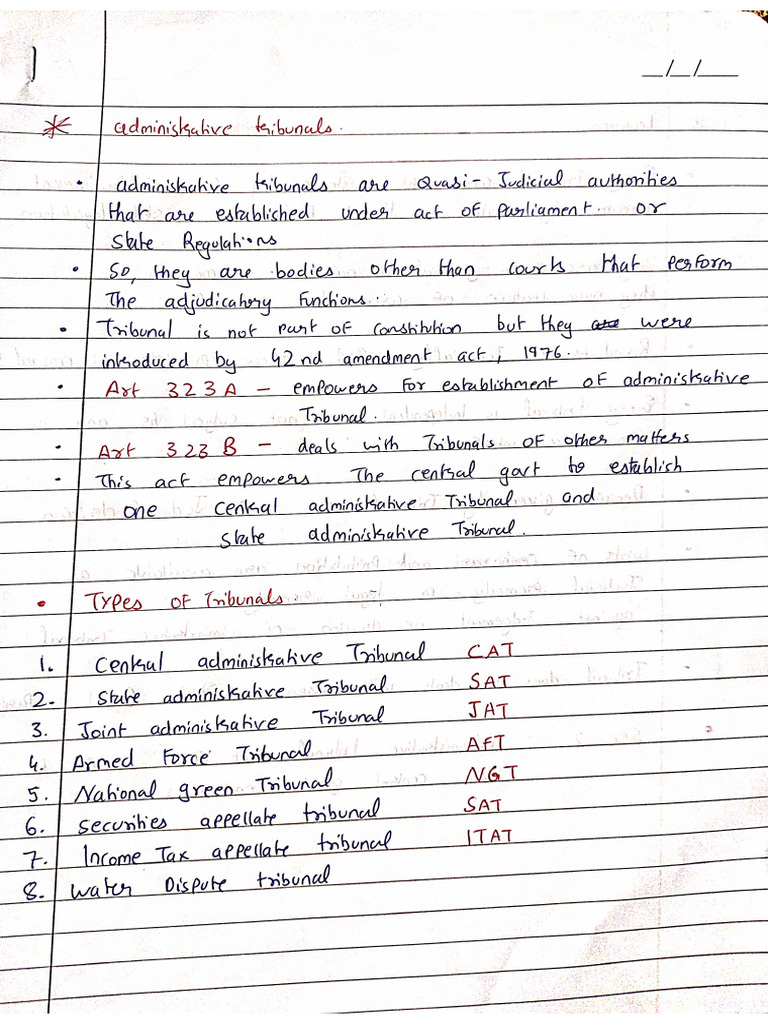 1
_/_/___
* administrative tribunals.
• administrative tribunals are Quasi-Judicial authorities
that are established under act of Parliament. or
State Regulations
• So, they are bodies other than courts that perform
The adjudicatory functions.
• Tribunal is not part of Constitution but they are were
introduced by 42nd amendment act, 1976.
• Art 323A - empowers for establishment of administrative
Tribunal.
• Art 323B - deals with Tribunals of other matters
• This act empowers The central govt to establish
one Central administrative Tribunal and
State administrative Tribunal.
• Types of Tribunals.
1. Central administrative Tribunal CAT
2. State administrative Tribunal SAT
3. Joint administrative Tribunal JAT
4. Armed Force Tribunal AFT
5. National green Tribunal NGT
6. securities appellate tribunal SAT
7. Income Tax appellate tribunal ITAT
8. Water Dispute tribunal